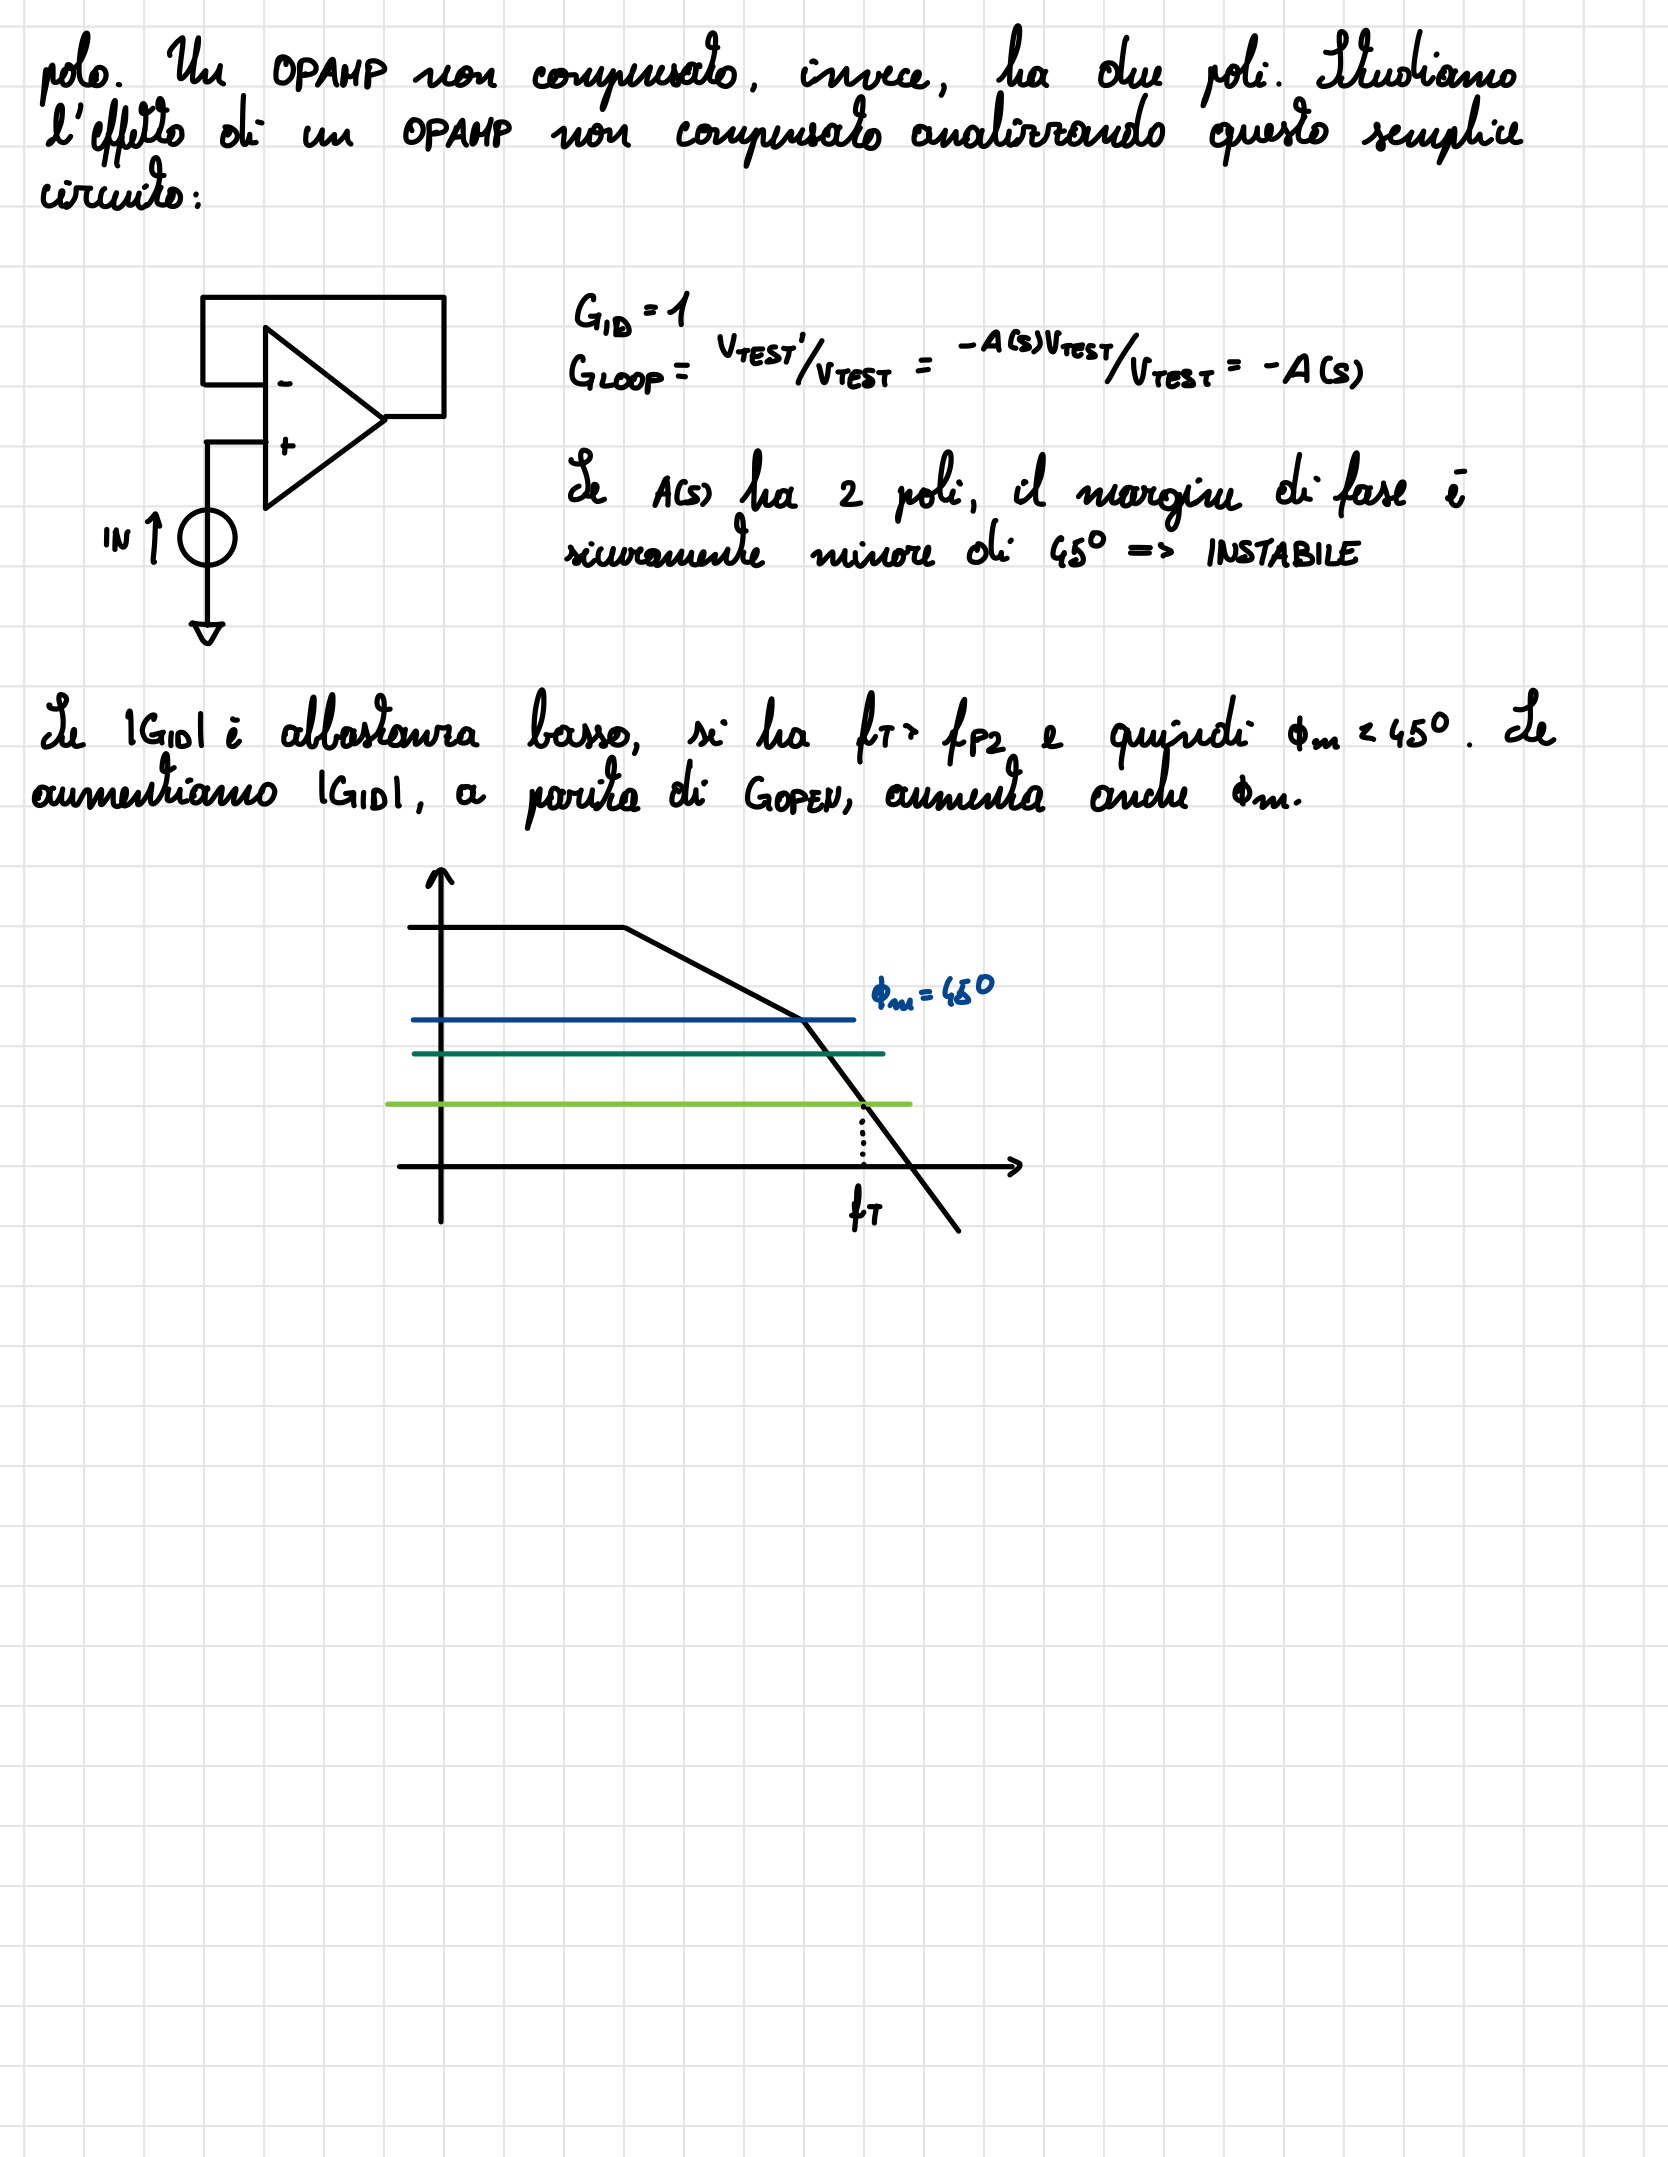 polo. Un OPAMP non compensato, invece, ha due poli. Studiamo
l'effetto di un OPAMP non compensato analizzando questo semplice
circuito:
G_ID = 1
G_LOOP = V_TEST'/V_TEST = -A(s)V_TEST/V_TEST = -A(s)
-
+
IN
Se A(s) ha 2 poli, il margine di fase è
sicuramente minore di 45° => INSTABILE
Se |G_ID| è abbastanza basso, si ha f_T > f_P2 e quindi ϕ_m < 45°. Se
aumentiamo |G_ID|, a parità di G_OPEN, aumenta anche ϕ_m.
ϕ_m = 45°
f_T